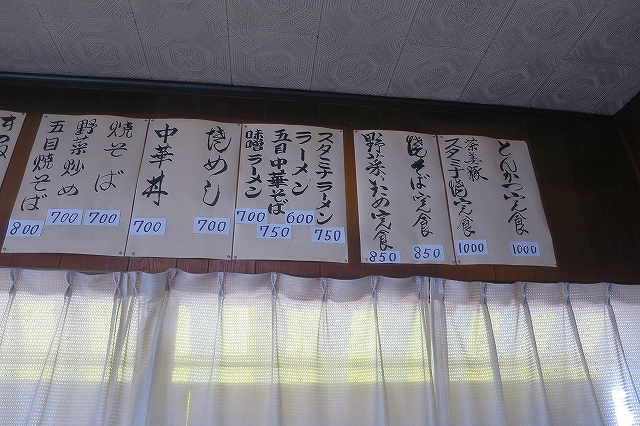 とんかつ定食
1000
茶美豚
スタミナ焼定食
1000
焼そば定食
850
野菜いため定食
850
スタミナラーメン
750
ラーメン
600
五目中華そば
750
味噌ラーメン
700
焼めし
700
中華丼
700
焼そば
700
野菜炒め
700
五目焼そば
800